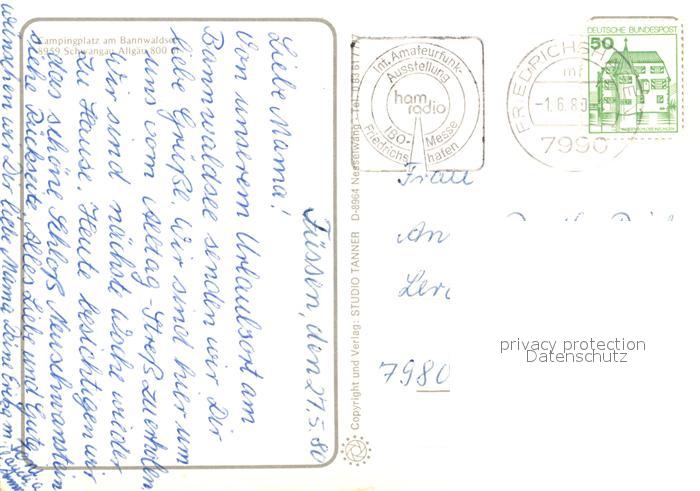 Campingplatz am Bannwaldsee
8959 Schwangau Allgäu 800 m
Füssen, den 27.5.80
Liebe Mama!
Von unserem Urlaubsort am
Bannwaldsee senden wir Dir
liebe Grüße. Wir sind hier um
uns vom Alltag-Streß zu erholen
Wir sind nächste Woche wieder
zu Hause. Heute besichtigen wir
das schöne Schloß Neuschwanstein
siehe Rückseite. Alles Liebe und Gute
wünschen wir Dir liebe Mama Deine Erika m.
Copyright und Verlag: STUDIO TANNER D-8964 Nesselwang
Int. Amateurfunk-
Ausstellung
ham
radio
IBO-
Messe
Friedrichshafen
FRIEDRICHSHAFEN
-1.6.80
7990
DEUTSCHE BUNDESPOST
50
Frau
An
7980
privacy protection
Datenschutz